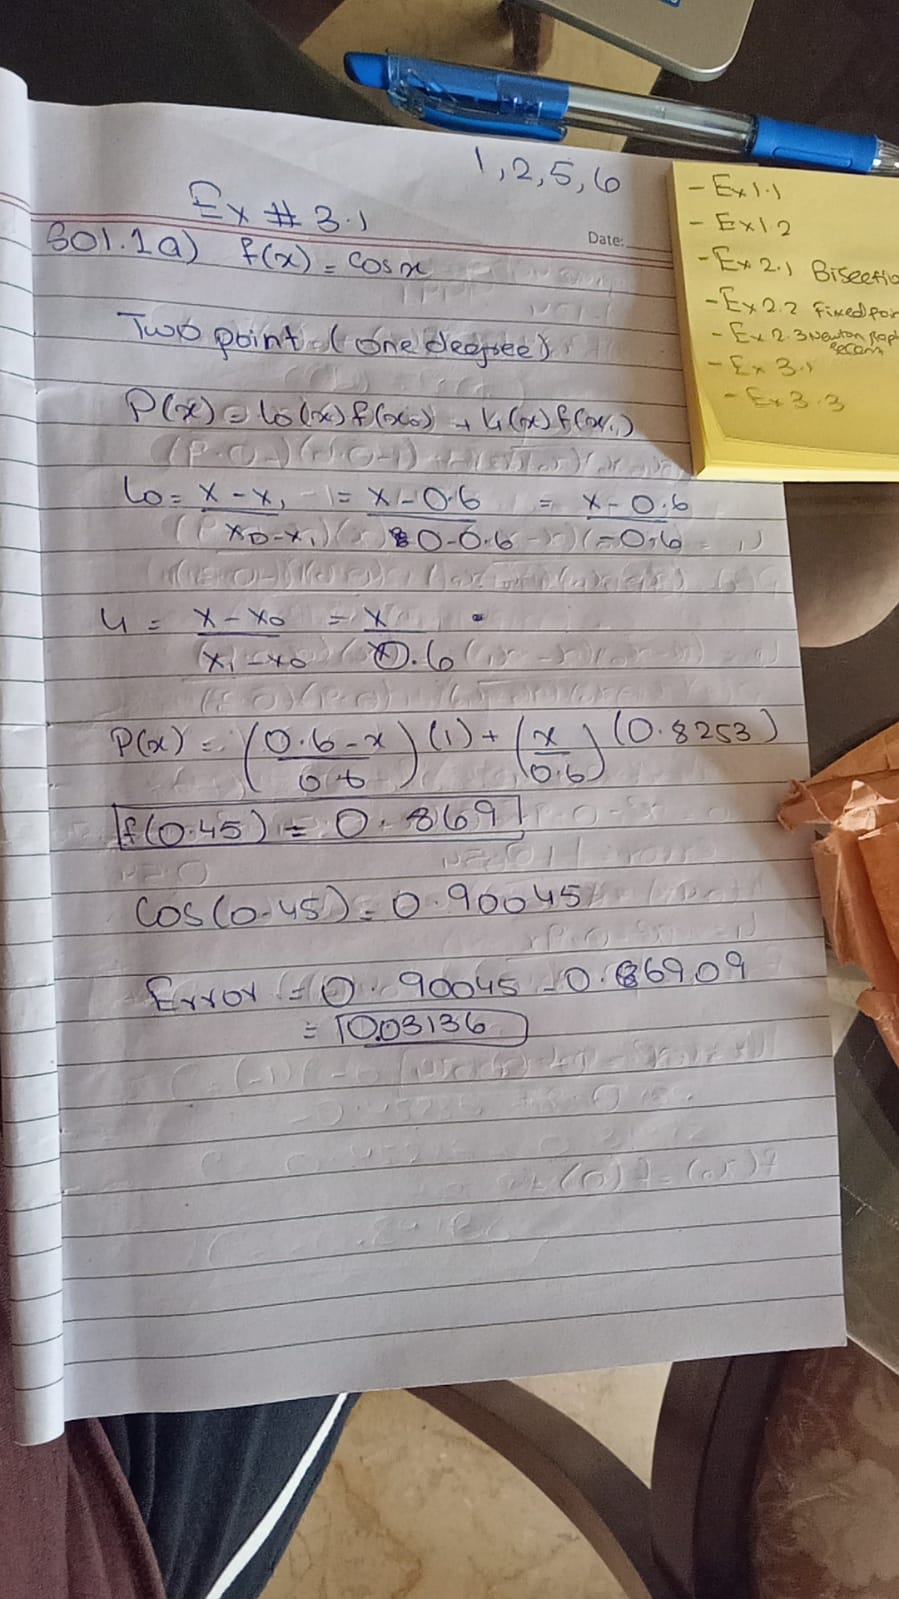 1,2,5,6
Ex # 3.1
Date:
Sol.1a) f(x) = cosx
Two point (one degree)
P(x) = L0(x) f(x0) + L1(x) f(x1)
L0 = x - x1 / x0 - x1 = x - 0.6 / 0 - 0.6 = x - 0.6 / -0.6
L1 = x - x0 / x1 - x0 = x / 0.6
P(x) = (0.6 - x / 0.6) (1) + (x / 0.6) (0.8253)
f(0.45) = 0.869
cos(0.45) = 0.90045
Error = 0.90045 - 0.86909
= 0.03136
- Ex 1.1
- Ex 1.2
- Ex 2.1 Bisectio
- Ex 2.2 Fixed Poin
- Ex 2.3 Newton Rap
Secant
- Ex 3.1
- Ex 3.3